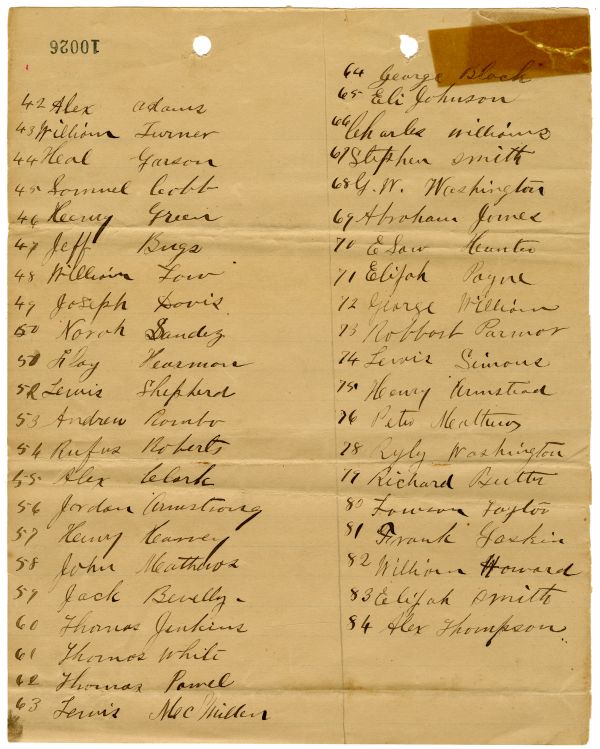 10026
42 Alex Adams
43 William Turner
44 Heal Garson
45 Somuel Cobb
46 Henry Green
47 Jeff Bugs
48 William Low
49 Joseph Dovis
50 Norah Sandez
51 Hearmon
52 Lewis Shepherd
53 Andrew Rombo
54 Rufus Roberts
55 Alex Clark
56 Jordan Armstrong
57 Henry Harvey
58 John Mathews
59 Jack Bevelly
60 Thomas Jenkins
61 Thomas White
62 Thomas Powel
63 Lewis McMillen
64 George Block
65 Eli Johnson
66 Charles Williams
67 Stephen Smith
68 G. W. Washington
69 Abraham Jones
70 Esaw Hunter
71 Elijah Payne
72 George William
73 Robbort Parmor
74 Lewis Simons
75 Henry Armstead
76 Peter Matthews
78 Ryly Washington
79 Richard Butter
80 Taylor
81 Frank Gaskin
82 William Howard
83 Elijah Smith
84 Alex Thompson